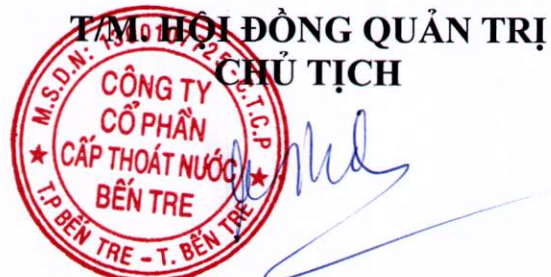 T/M. HỘI ĐỒNG QUẢN TRỊ
CHỦ TỊCH
CÔNG TY
CỔ PHẦN
CẤP THOÁT NƯỚC
BẾN TRE
T.P BẾN TRE - T. BẾN TRE